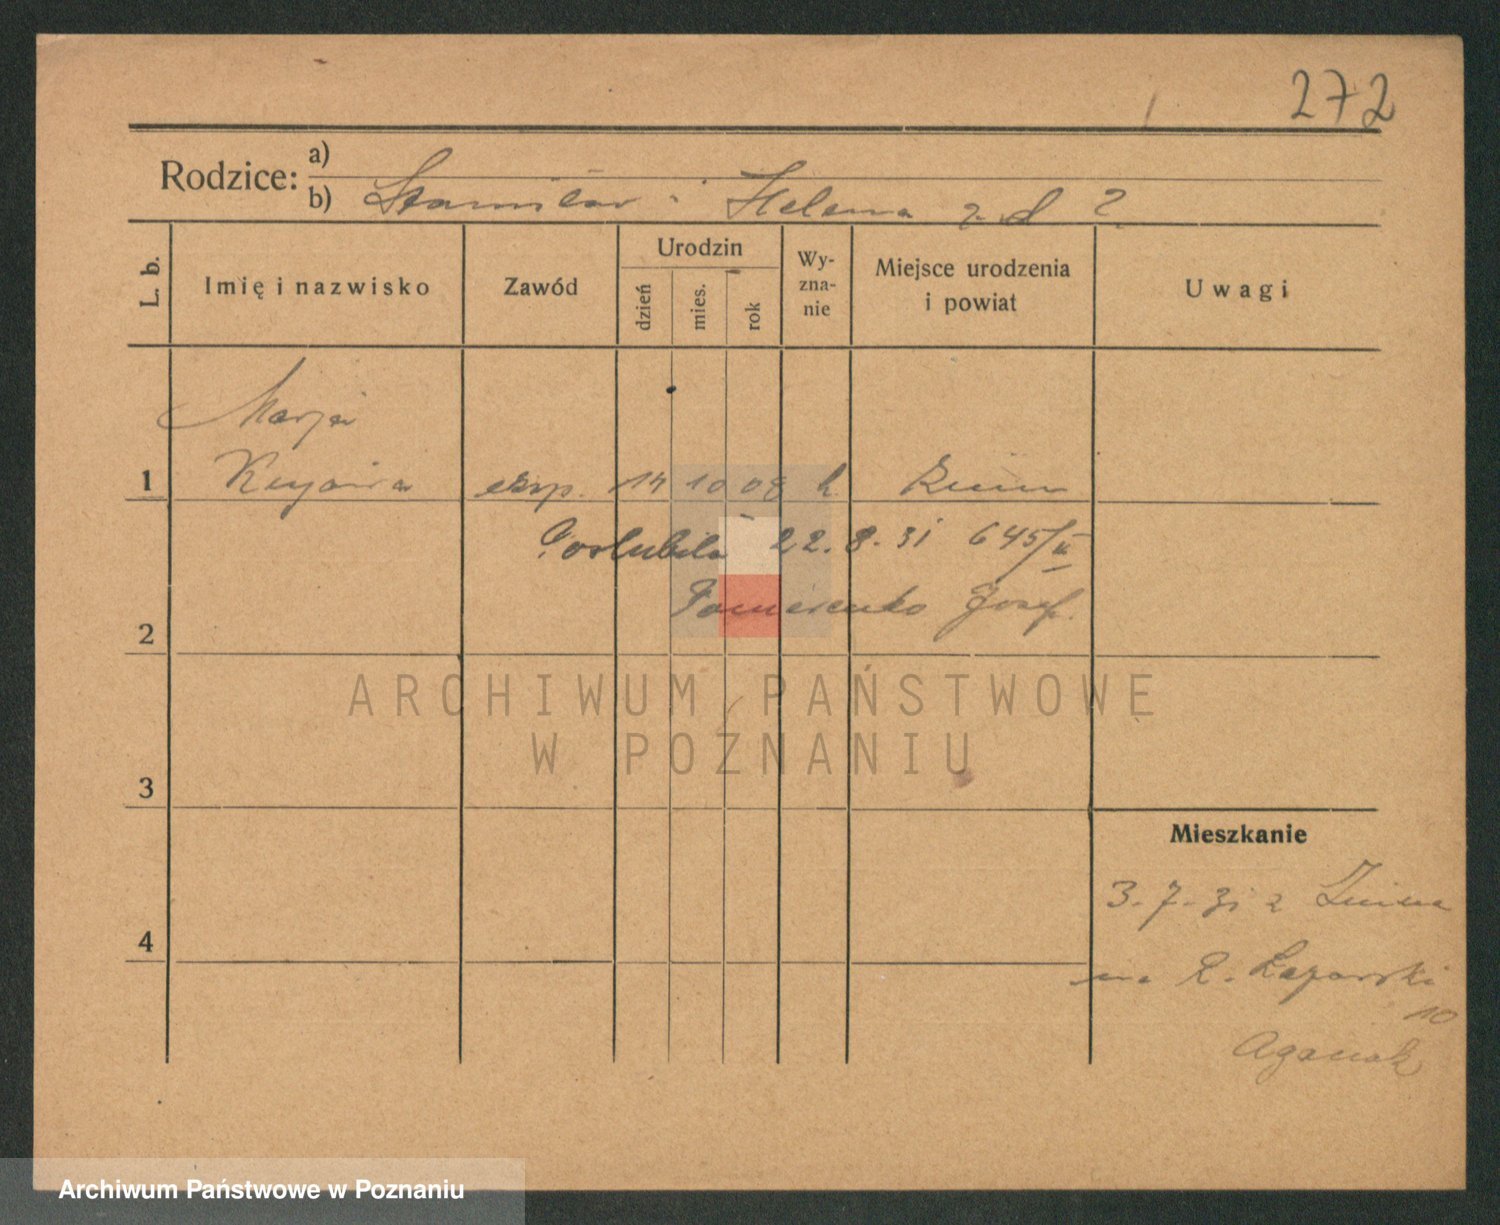 272
Rodzice:
a)
b) Stanisław i Helena z d ?
L. b.
Imię i nazwisko
Zawód
Urodzin
dzień
mies.
rok
Wy-
zna-
nie
Miejsce urodzenia
i powiat
Uwagi
Marja
1 Kujawa eksp. 14 10 08 k Żnin
Poślubiła 22.8.31 645/II
2
Pomerenko Józef.
ARCHIWUM PAŃSTWOWE
W POZNANIU
3
Mieszkanie
3.7.31 z Żnina
4
na R. Łazarski
10
Archiwum Państwowe w Poznaniu